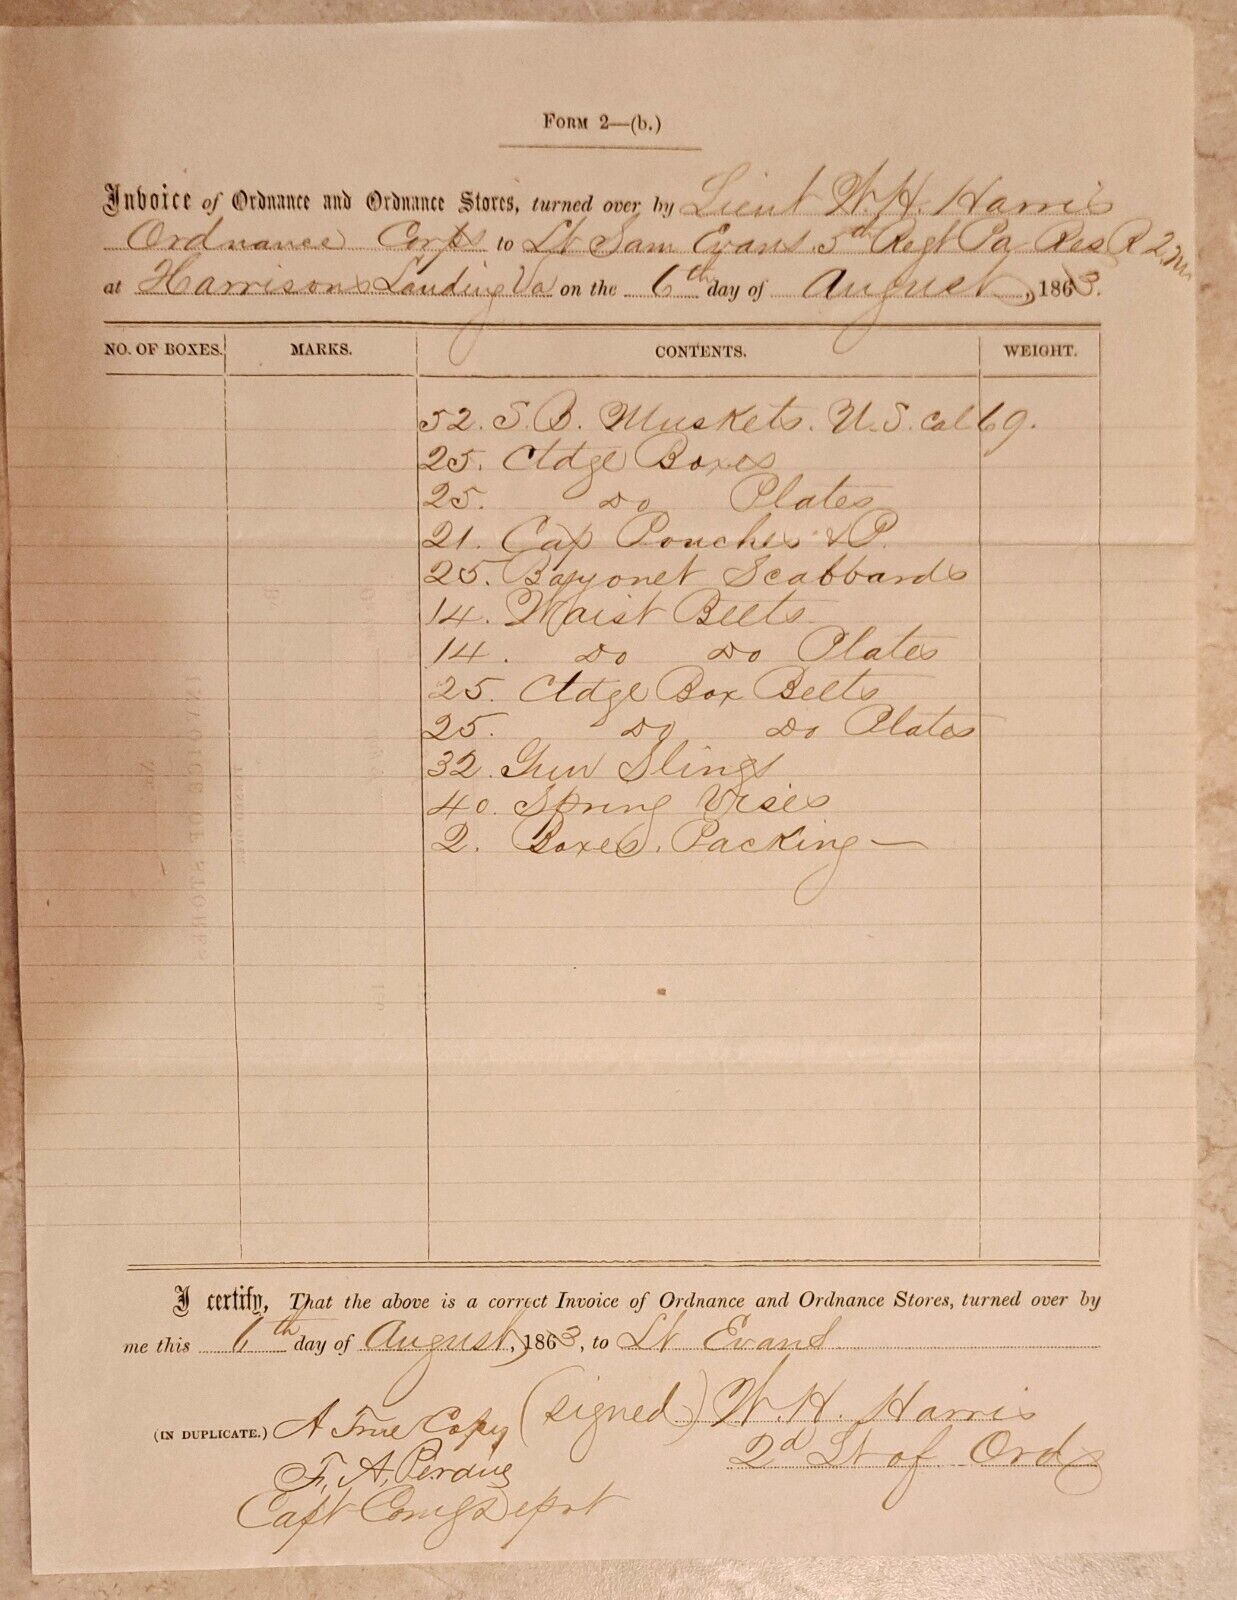 FORM 2—(b.)
Invoice of Ordnance and Ordnance Stores, turned over by Lieut W. H. Harris
Ordnance Corps to Lt Sam Evans. 5th Regt Pa Res R 2
at Harrisons Landing Va on the 6th day of August, 1863.
NO. OF BOXES. MARKS. CONTENTS. WEIGHT.
52. S. B. Muskets. U. S. Cal 69.
25. Ctdge Boxes
25. Do Plates
21. Cap Pouches & P.
25. Bayonet Scabbards
14. Waist Belts
14. Do Do Plates
25. Ctdge Box Belts
25. Do Do Plates
32. Gun Slings
40. Spring Vises
2. Boxes. Packing —
I certify, That the above is a correct Invoice of Ordnance and Ordnance Stores, turned over by
me this 6th day of August, 1863, to Lt Evans
(IN DUPLICATE.) A True Copy (signed) W. H. Harris
F. A. Perdue 2d Lt of Ord
Capt Comg Depot